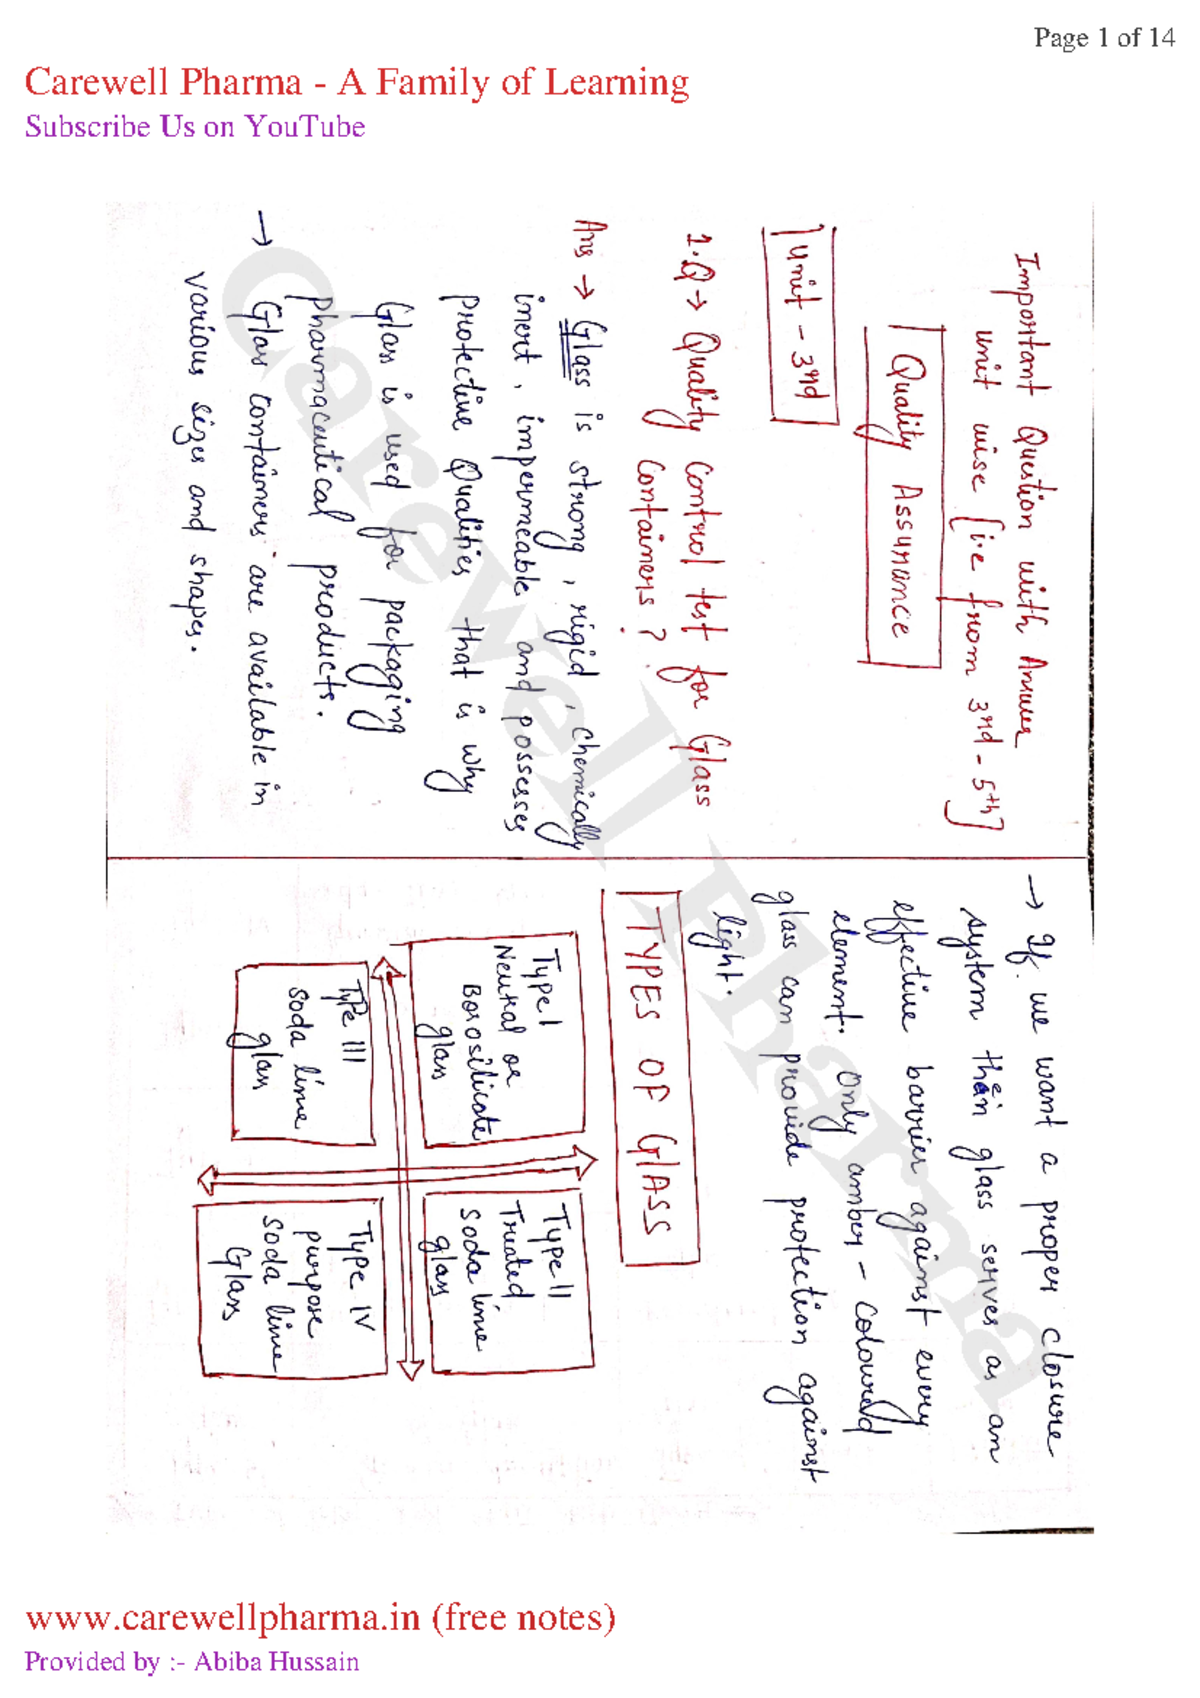 Page 1 of 14
Carewell Pharma - A Family of Learning
Subscribe Us on YouTube
Important Question with Answer
unit wise [i.e from 3rd - 5th]
Quality Assurance
Unit - 3rd
1.Q → Quality Control test for Glass
Containers?
Ans → Glass is strong, rigid, chemically
inert, impermeable and possesses
protective Qualities that is why
Glass is used for packaging
pharmaceutical products.
→ Glass containers are available in
various sizes and shapes.
→ If we want a proper closure
system then glass serves as an
effective barrier against every
element. Only amber - coloured
glass can provide protection against
light.
TYPES OF GLASS
Type I
Neutral or
Borosilicate
glass
Type II
Treated
soda lime
glass
Type III
soda lime
glass
Type IV
purpose
soda lime
Glass
Carewell Pharma
www.carewellpharma.in (free notes)
Provided by :- Abiba Hussain